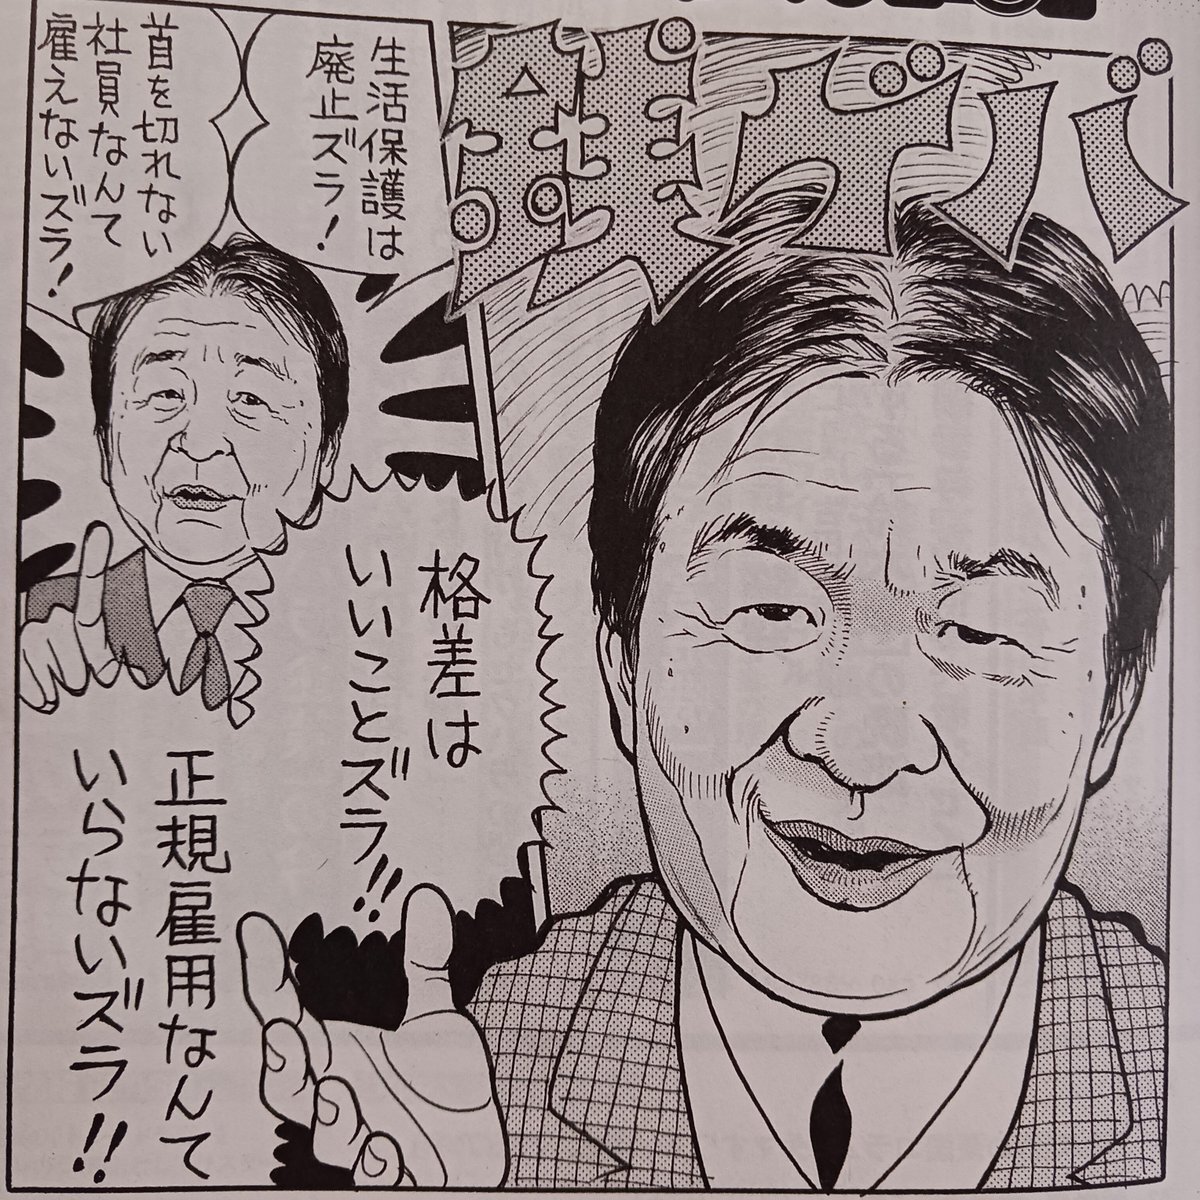 銭ゲバ
生活保護は
廃止ズラ!
首を切れない
社員なんて
雇えないズラ!
格差は
いいことズラ!!
正規雇用なんて
いらないズラ!!